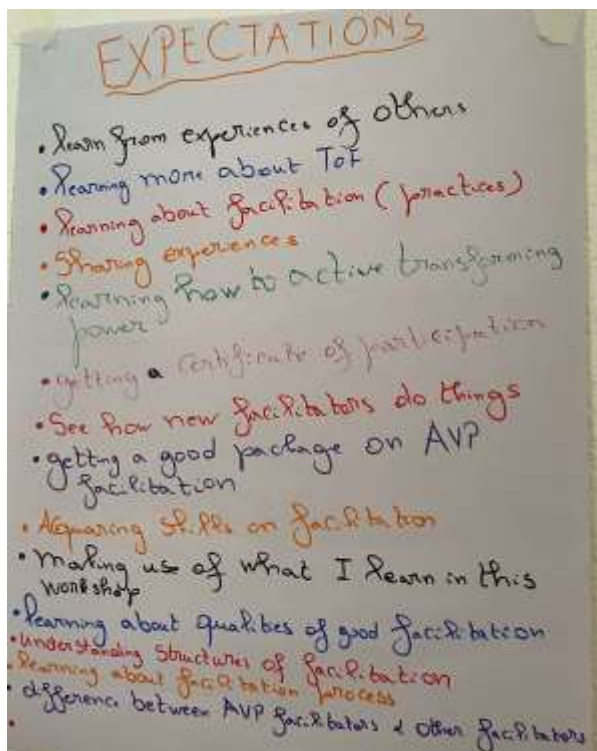 EXPECTATIONS
• learn from experiences of others
• learning more about ToF
• learning about facilitation (practices)
• Sharing experiences
• learning how to active transforming
power
• getting a certificate of participation
• See how new facilitators do things
• getting a good package on AVP
facilitation
• Acquaring skills on facilitation
• Making use of what I learn in this
workshop
• learning about qualities of good facilitation
• understanding structures of facilitation
• learning about facilitation process
• difference between AVP facilitators & other facilitators
•